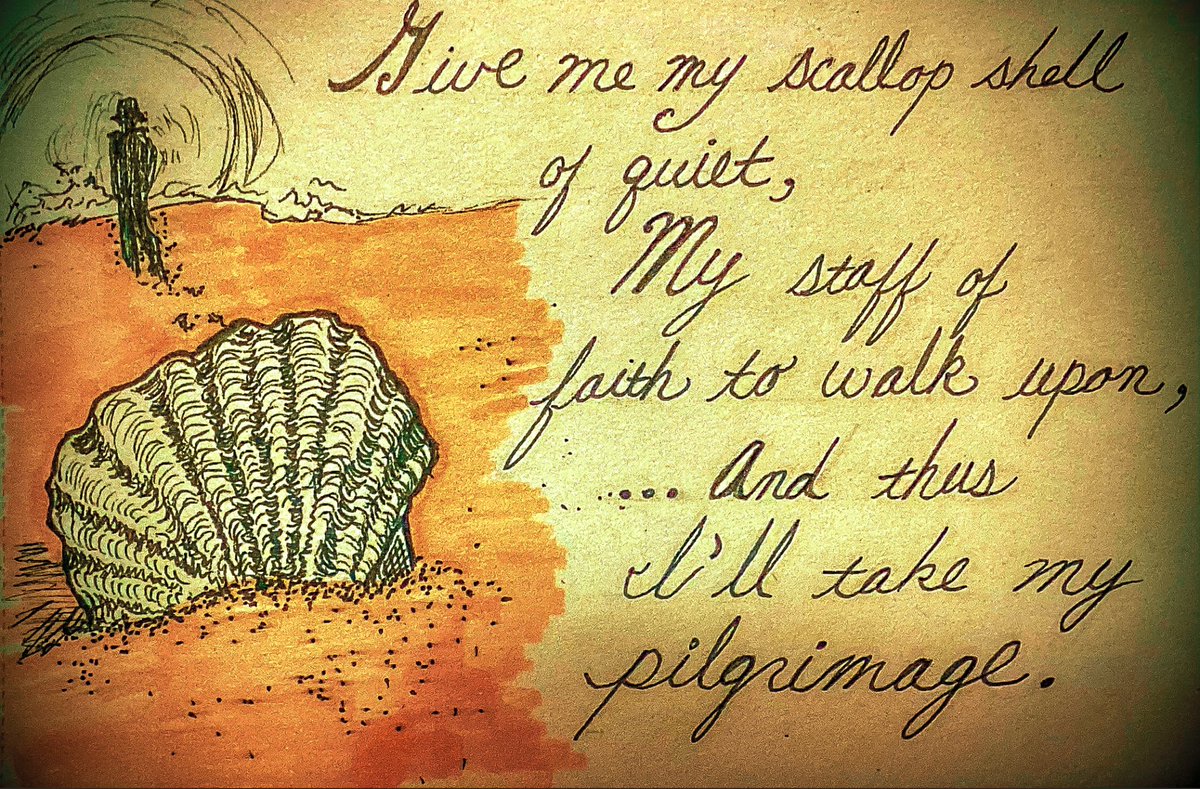 Give me my scallop shell
of quiet,
My staff of
faith to walk upon,
.... And thus
I'll take my
pilgrimage.